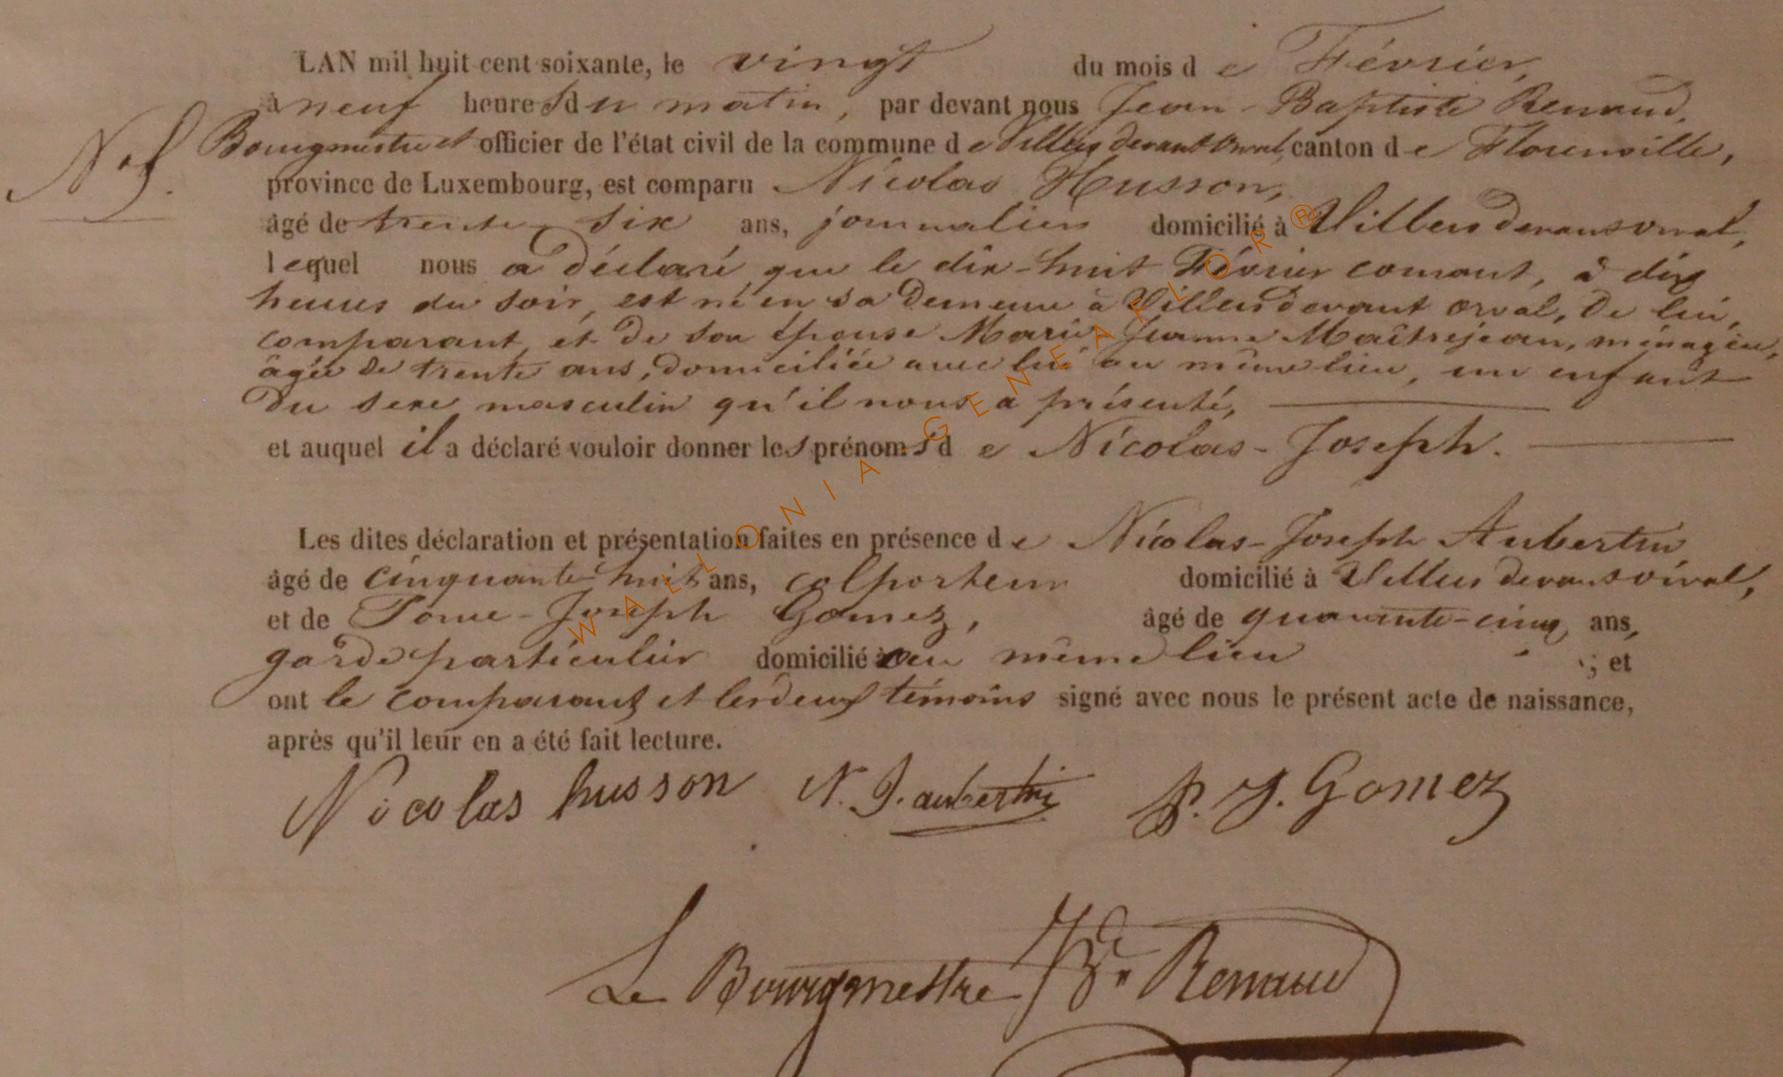 LAN mil huit cent soixante, le vingt du mois de Février,
à neuf heures du matin, par devant nous Jean-Baptiste Renaud,
Bourgmestre et officier de l'état civil de la commune de Villers devant Orval, canton de Florenville,
N° 5.
province de Luxembourg, est comparu Nicolas Husson,
âgé de trente-six ans, journalier domicilié à Villers devant orval,
lequel nous a déclaré que le dix-huit Février courant, à dix
heures du soir, est né en sa demeure à Villers devant orval, de lui,
comparant, et de son épouse Marie-Jeanne Maîtrejean, ménagère,
âgée de trente ans, domiciliée avec lui au même lieu, un enfant
du sexe masculin qu'il nous a présenté,
et auquel il a déclaré vouloir donner les prénoms de Nicolas-Joseph.
Les dites déclaration et présentation faites en présence de Nicolas-Joseph Aubertin
âgé de cinquante-huit ans, colporteur domicilié à Villers devant orval,
et de Joseph Gomez, âgé de quarante-cinq ans,
garde particulier domicilié au même lieu ; et
ont le comparant et les deux témoins signé avec nous le présent acte de naissance,
après qu'il leur en a été fait lecture.
Nicolas husson N. J. aubertin P. J. Gomez
Le Bourgmestre JBte Renaud
WALLONIA GENEAFLOR®